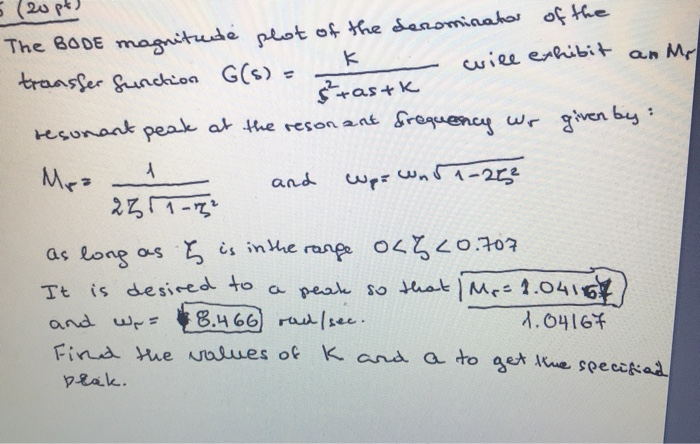 5 (20 pt)
The BODE magnitude plot of the denominator of the
transfer function G(s) = K / s²+as+K will exhibit an Mr
resonant peak at the resonant frequency wr given by:
Mr= 1 / 2ζ√1-ζ² and wr= wn√1-2ζ²
as long as ζ is in the range 0<ζ<0.707
It is desired to a peak so that Mr= 1.04167
and wr= 8.466 rad/sec. 1.04167
Find the values of K and a to get the specified
peak.